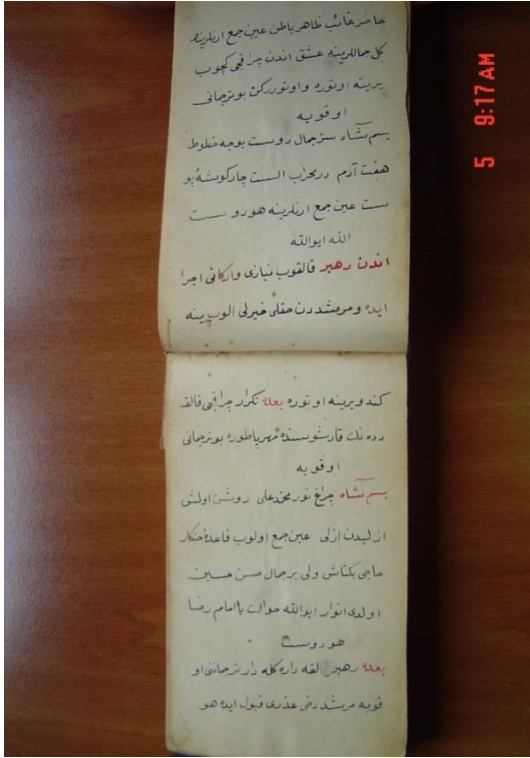 حاضر غائب ظاهر باطن عين جمع ارنلرينه
كل جماللرينه عشق اندن چراقجى كچوب
يرينه اوتوره و اوتورركن بوترجمانى
اوقويه
بسم شاه ستر جمال دوست بوجه خطوط
هفت آدم در محراب الست چاركوشۀ پو
ست عين جمع ارنلرينه هو دوست
الله ايوالله
اندن رهبر قالقوب نيازى واركانى اجرا
ايده ومرشددن حقلى خيرلى الوب يينه
كندويرينه اوتوره بعده تكرار چراقجى قالقه
دده نك قارشوسنده مهر ياطوره بوترجمانى
اوقويه
بسم شاه چراغ نور محمد على روشن اولمش
ازليدن ازلى عين جمع اولوب قاعدۀ خنكار
حاجى بكتاش ولى بر جمال حسن حسين
اولدى انوار ايوالله حوالت يا امام رضا
هو دوست
بعده رهبر قالقه داره كله دار ترجماننى او
قويه مرشد دخى عذرى قبول ايده هو
5 9:17AM